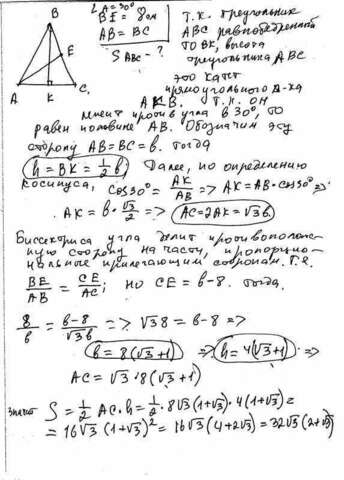 B
E
A K C
∠A=30°
BE = 8см
AB = BC
S ABC - ?
Т.К. треугольник
ABC равнобедренный
то BK, высота
треугольника ABC
это катет
прямоугольного Δ-ка
AKB. Т.К. он
лежит против угла в 30°, то
равен половине AB. Обозначим эту
сторону AB=BC=b. тогда
h=BK=½b; Далее, по определению
косинуса, cos30°= AK/AB => AK=AB·cos30° =>
AK=b·√3/2 => AC=2AK=√3b.
Биссектриса угла делит противополож-
ную сторону на части, пропорцио-
нальные прилегающим сторонам. Т.е.
BE/AB = CE/AC; но CE=b-8. Тогда.
8/b = b-8/√3b => √3 8 = b-8 =>
b=8(√3+1) => h=4(√3+1) =>
AC=√3·8(√3+1)
значит S=½ AC·h=½·8√3(1+√3)·4(1+√3)=
=16√3(1+√3)²=16√3(4+2√3)=32√3(2+√3)